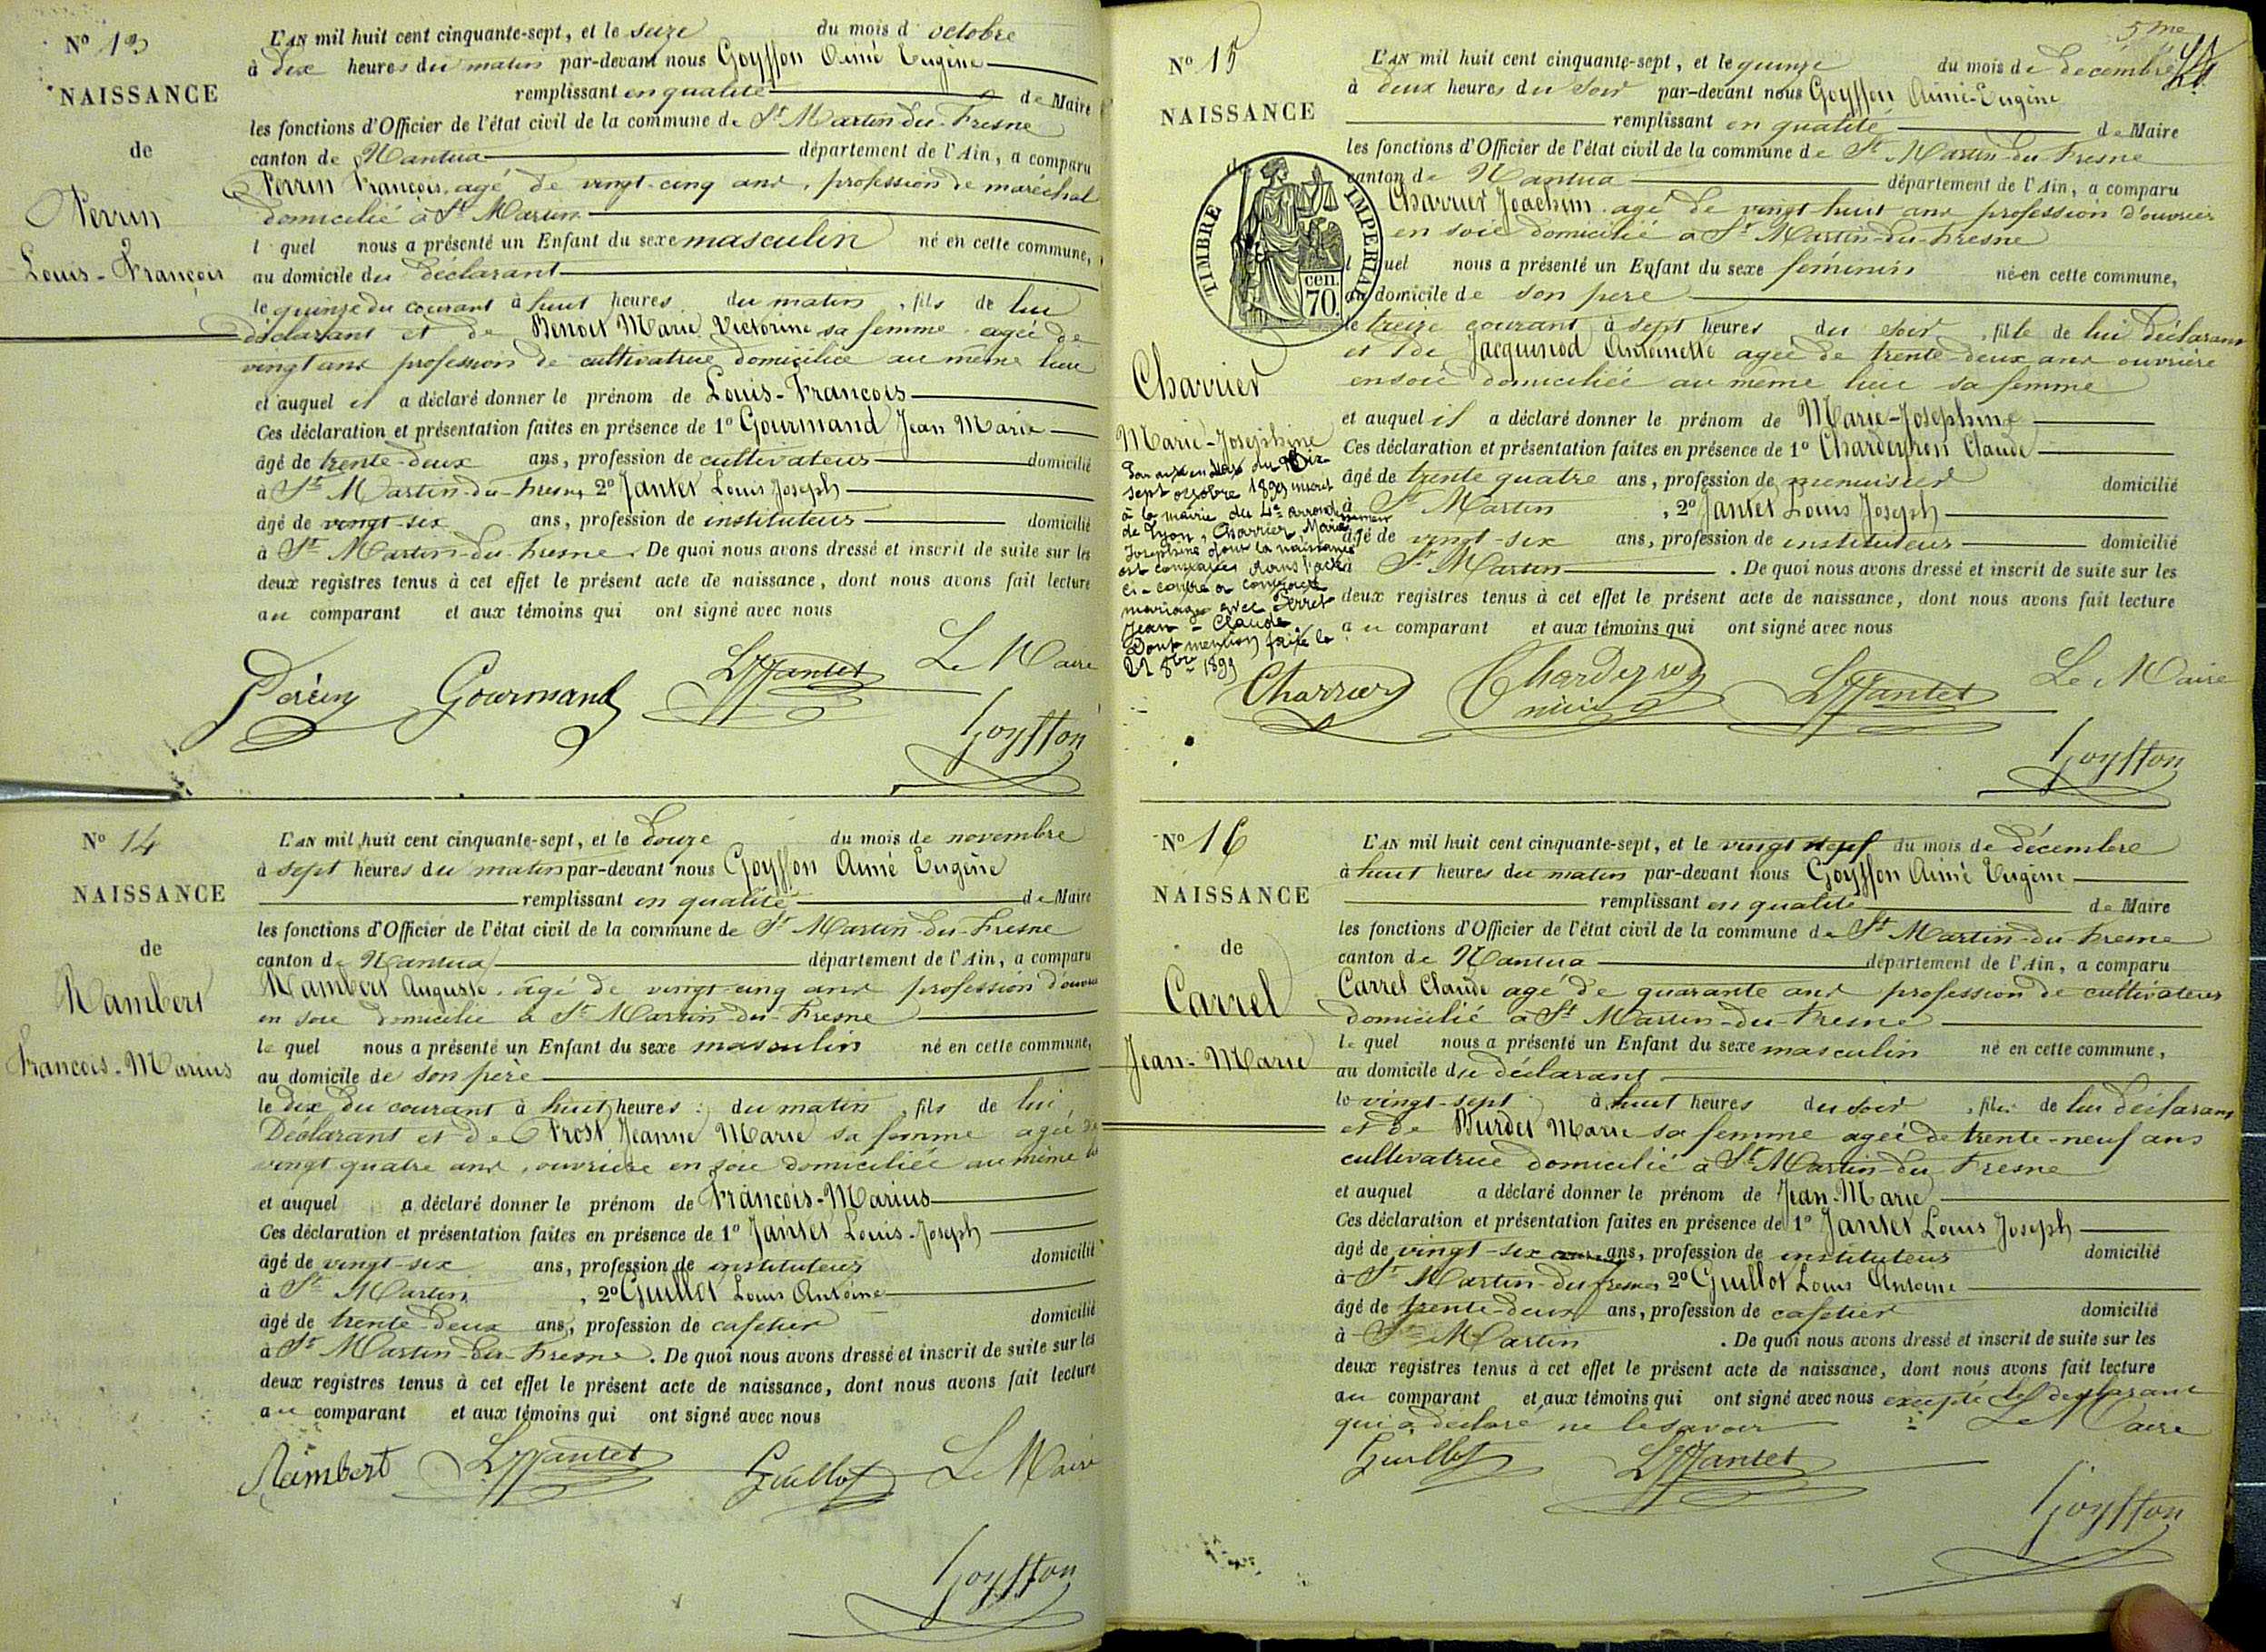 N° 13
NAISSANCE
de
Perrin
Louis-François
L'AN mil huit cent cinquante-sept, et le seize du mois d'octobre
à dix heures du matin par-devant nous Goyffon Aimé Eugène
remplissant en qualité de Maire
les fonctions d'Officier de l'état civil de la commune de St Martin-du-Fresne
canton de Nantua département de l'Ain, a comparu
Perrin François, agé de vingt-cinq ans, profession de maréchal
domicilié à St Martin
l quel nous a présenté un Enfant du sexe masculin né en cette commune,
au domicile du déclarant
le quinze du courant à huit heures du matin, fils de lui
déclarant et de Benoit Marie Victorine sa femme agée de
vingt ans profession de cultivatrice domiciliée au même lieu
et auquel il a déclaré donner le prénom de Louis-François
Ces déclaration et présentation faites en présence de 1° Gourmand Jean Marie
âgé de trente-deux ans, profession de cultivateur domicilié
à St Martin-du-Fresne, 2° Jantet Louis Joseph
âgé de vingt-six ans, profession de instituteur domicilié
à St Martin-du-Fresne. De quoi nous avons dressé et inscrit de suite sur les
deux registres tenus à cet effet le présent acte de naissance, dont nous avons fait lecture
au comparant et aux témoins qui ont signé avec nous
Le Maire
Gourmand LJJantet
Goyffon
N° 14
NAISSANCE
de
Rambert
François-Marius
L'AN mil huit cent cinquante-sept, et le douze du mois de novembre
à sept heures du matin par-devant nous Goyffon Aimé Eugène
remplissant en qualité de Maire
les fonctions d'Officier de l'état civil de la commune de St Martin-du-Fresne
canton de Nantua département de l'Ain, a comparu
Rambert Auguste, agé de vingt-cinq ans profession d'ouvrier
en soie domicilié à St Martin-du-Fresne
le quel nous a présenté un Enfant du sexe masculin né en cette commune,
au domicile de son père
le dix du courant à huit heures du matin, fils de lui
Déclarant et de Frost Jeanne Marie sa femme agée de
vingt quatre ans, ouvrière en soie domiciliée au même
et auquel a déclaré donner le prénom de François-Marius
Ces déclaration et présentation faites en présence de 1° Jantet Louis-Joseph
âgé de vingt-six ans, profession de instituteur domicilié
à St Martin, 2° Guillot Louis Antoine
âgé de trente-deux ans, profession de cafetier domicilié
à St Martin-du-Fresne. De quoi nous avons dressé et inscrit de suite sur les
deux registres tenus à cet effet le présent acte de naissance, dont nous avons fait lecture
au comparant et aux témoins qui ont signé avec nous
Rambert LJJantet Guillot Le Maire
Goyffon
5me
N° 15
NAISSANCE
de
TIMBRE IMPERIAL
70 cen.
Charrier
Marie-Joséphine
sept octobre 1899 inscrit
à la mairie du 4e arrondissement
de Lyon, Charrier, Marie
Joséphine dont la naissance
est constatée dans l'acte
ci-contre a contracté
mariage avec Perret
Jean-Claude.
Dont mention faite le
21 8bre 1899
L'AN mil huit cent cinquante-sept, et le quinze du mois de décembre
à deux heures du soir par-devant nous Goyffon Aimé-Eugène
remplissant en qualité de Maire
les fonctions d'Officier de l'état civil de la commune de St Martin-du-Fresne
canton de Nantua département de l'Ain, a comparu
Charrier Joachim agé de vingt-huit ans profession d'ouvrier
en soie domicilié à St Martin-du-Fresne
l quel nous a présenté un Enfant du sexe féminin né en cette commune,
au domicile de son père
le treize courant à sept heures du soir, fille de lui déclarant
et de Jacquinod Antoinette agée de trente-deux ans ouvrière
en soie domiciliée au même lieu sa femme
et auquel il a déclaré donner le prénom de Marie-Joséphine
Ces déclaration et présentation faites en présence de 1° Chardeyron Claude
âgé de trente quatre ans, profession de menuisier domicilié
à St Martin, 2° Jantet Louis Joseph
âgé de vingt-six ans, profession de instituteur domicilié
à St Martin. De quoi nous avons dressé et inscrit de suite sur les
deux registres tenus à cet effet le présent acte de naissance, dont nous avons fait lecture
au comparant et aux témoins qui ont signé avec nous
Charrier Chardeyron LJJantet Le Maire
Goyffon
N° 16
NAISSANCE
de
Carrel
Jean-Marie
L'AN mil huit cent cinquante-sept, et le vingt neuf du mois de décembre
à huit heures du matin par-devant nous Goyffon Aimé Eugène
remplissant en qualité de Maire
les fonctions d'Officier de l'état civil de la commune de St Martin-du-Fresne
canton de Nantua département de l'Ain, a comparu
Carrel Claude agé de quarante ans profession de cultivateur
domicilié à St Martin-du-Fresne
le quel nous a présenté un Enfant du sexe masculin né en cette commune,
au domicile du déclarant
le vingt-sept à huit heures du soir, fils de lui déclarant
et de Burdet Marie sa femme agée de trente-neuf ans
cultivatrice domicilié à St Martin-du-Fresne
et auquel a déclaré donner le prénom de Jean-Marie
Ces déclaration et présentation faites en présence de 1° Jantet Louis Joseph
âgé de vingt-six ans, profession de instituteur domicilié
à St Martin-du-Fresne, 2° Guillot Louis Antoine
âgé de trente-deux ans, profession de cafetier domicilié
à St Martin. De quoi nous avons dressé et inscrit de suite sur les
deux registres tenus à cet effet le présent acte de naissance, dont nous avons fait lecture
au comparant et aux témoins qui ont signé avec nous excepté le déclarant
qui a déclaré ne le savoir Le Maire
Guillot LJJantet
Goyffon